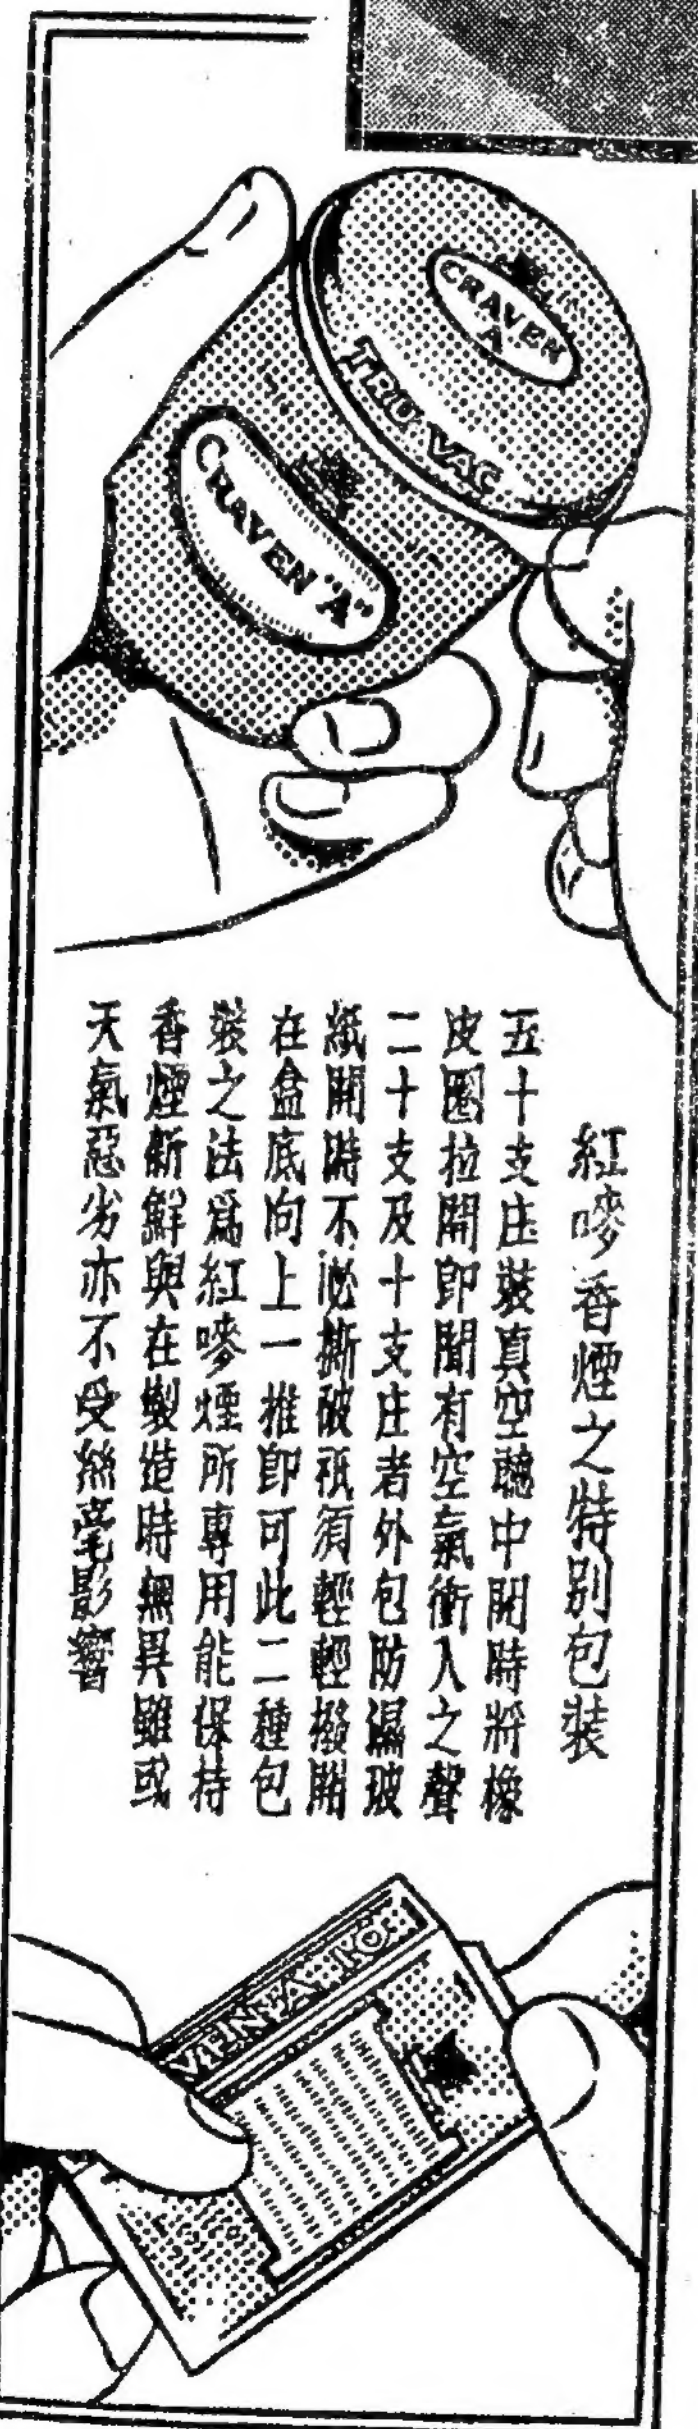 CRAVEN
A
TRU-VAC
CRAVEN "A"
紅嘜香煙之特別包裝
五十支庄裝真空聽中開時將橡
皮圈拉開即聞有空氣衝入之聲
二十支及十支庄者外包防濕玻
紙開時不必撕破祇須輕輕撥開
在盒底向上一推即可此二種包
裝之法爲紅嘜煙所專用能保持
香煙新鮮與在製造時無異雖或
天氣惡劣亦不受絲毫影響